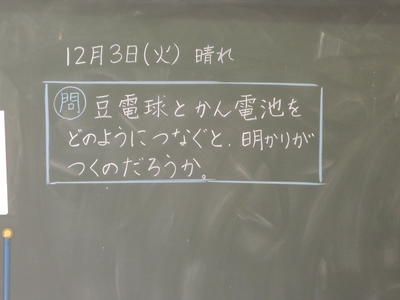 12月3日(火) 晴れ
問 豆電球とかん電池を
どのようにつなぐと、明かりが
つくのだろうか。